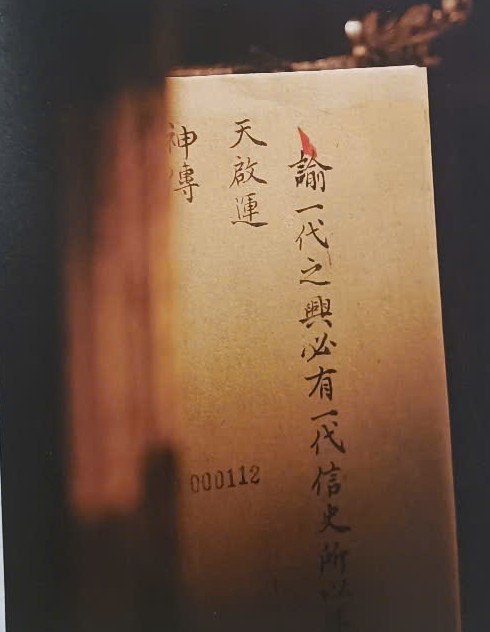 諭一代之興必有一代信史所以
天啟運
神傳
000112